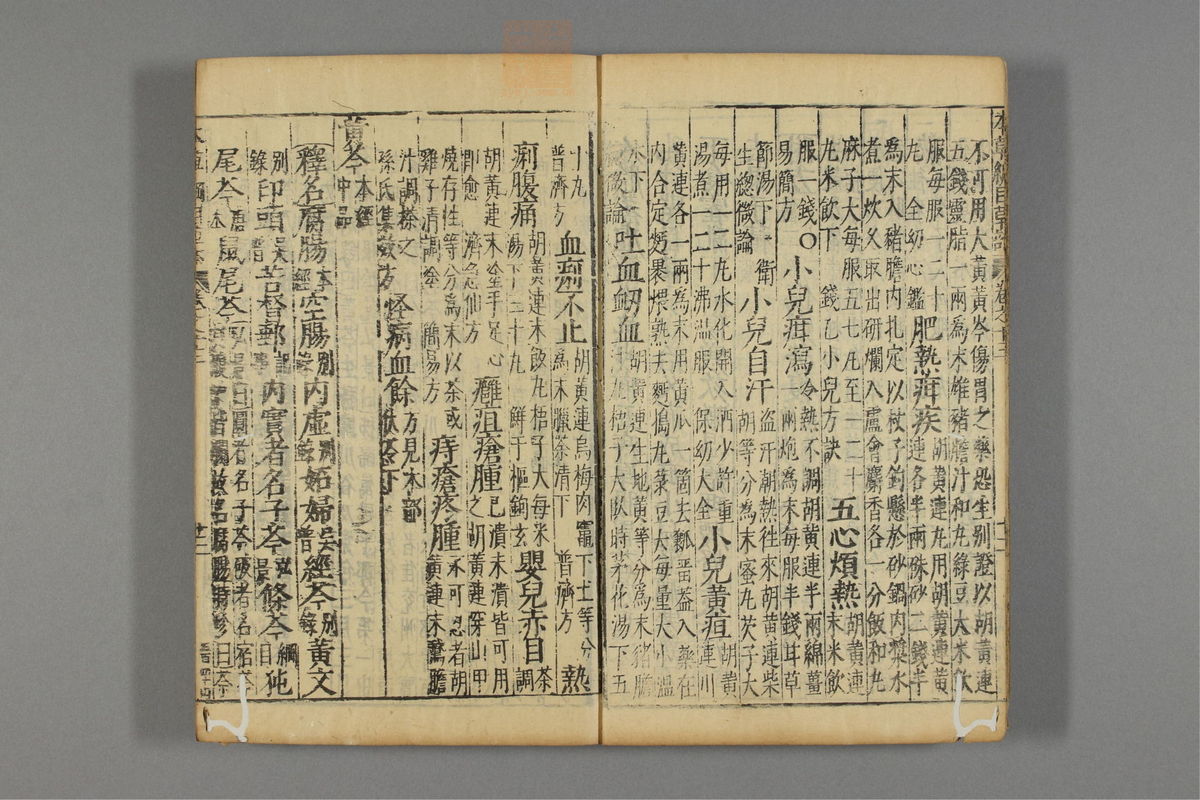 不可用大黃黃芩傷胃之藥恐生別證以胡黃連
五錢靈脂一兩為末雄豬膽汁和丸綠豆大米飲
服每服一二十丸 全幼心鑑 肥熱疳疾 胡黃連丸用胡黃連黃連各半兩硃砂二錢半
為末入豬膽內扎定以杖子鈎懸於砂鍋內漿水
煮一炊久取出研爛入蘆薈麝香各一分飯和丸
麻子大每服五七丸至一二十丸米飲下 錢乙小兒方訣 五心煩熱 胡黃連末米飲
服一錢 易簡方 ○小兒疳瀉 冷熱不調胡黃連半兩綿薑一兩炮為末每服半錢甘草
節湯下 衛生總微論 小兒自汗 盜汗潮熱往來胡黃連柴胡等分為末蜜丸芡子大
每用一二丸水化開入酒少許重湯煮一二十沸溫服 保幼大全 小兒黃疸 胡黃連川
黃連各一兩為末用黃瓜一箇去瓤留蓋入藥在
內合定麪裹煨熟去麪搗丸菉豆大每量大小溫
水下 總微論 吐血衂血 胡黃連生地黃等分為末豬膽汁丸梧子大臥時茅花湯下五
十丸 普濟方 血痢不止 胡黃連烏梅肉竈下土等分為末臘茶清下 普濟方 熱
痢腹痛 胡黃連末飯丸梧子大每米湯下三十丸 鮮于樞鉤玄 嬰兒赤目 茶調
胡黃連末塗手足心即愈 濟急仙方 癰疽瘡腫 已潰未潰皆可用之胡黃連穿山甲
燒存性等分為末以茶或雞子清調塗 簡易方 痔瘡疼腫 不可忍者胡黃連末鵞膽
汁調搽之 孫氏集效方 怪病血餘 方見本部
黃芩 本經中品
釋名 腐腸 本經 空腸 別錄 內虛 別錄 妬婦 吳普 經芩 別錄 黃文
別錄 印頭 吳普 苦督郵 記事 內實者名子芩 弘景 條芩 綱目 㹠
尾芩 唐本 鼠尾芩